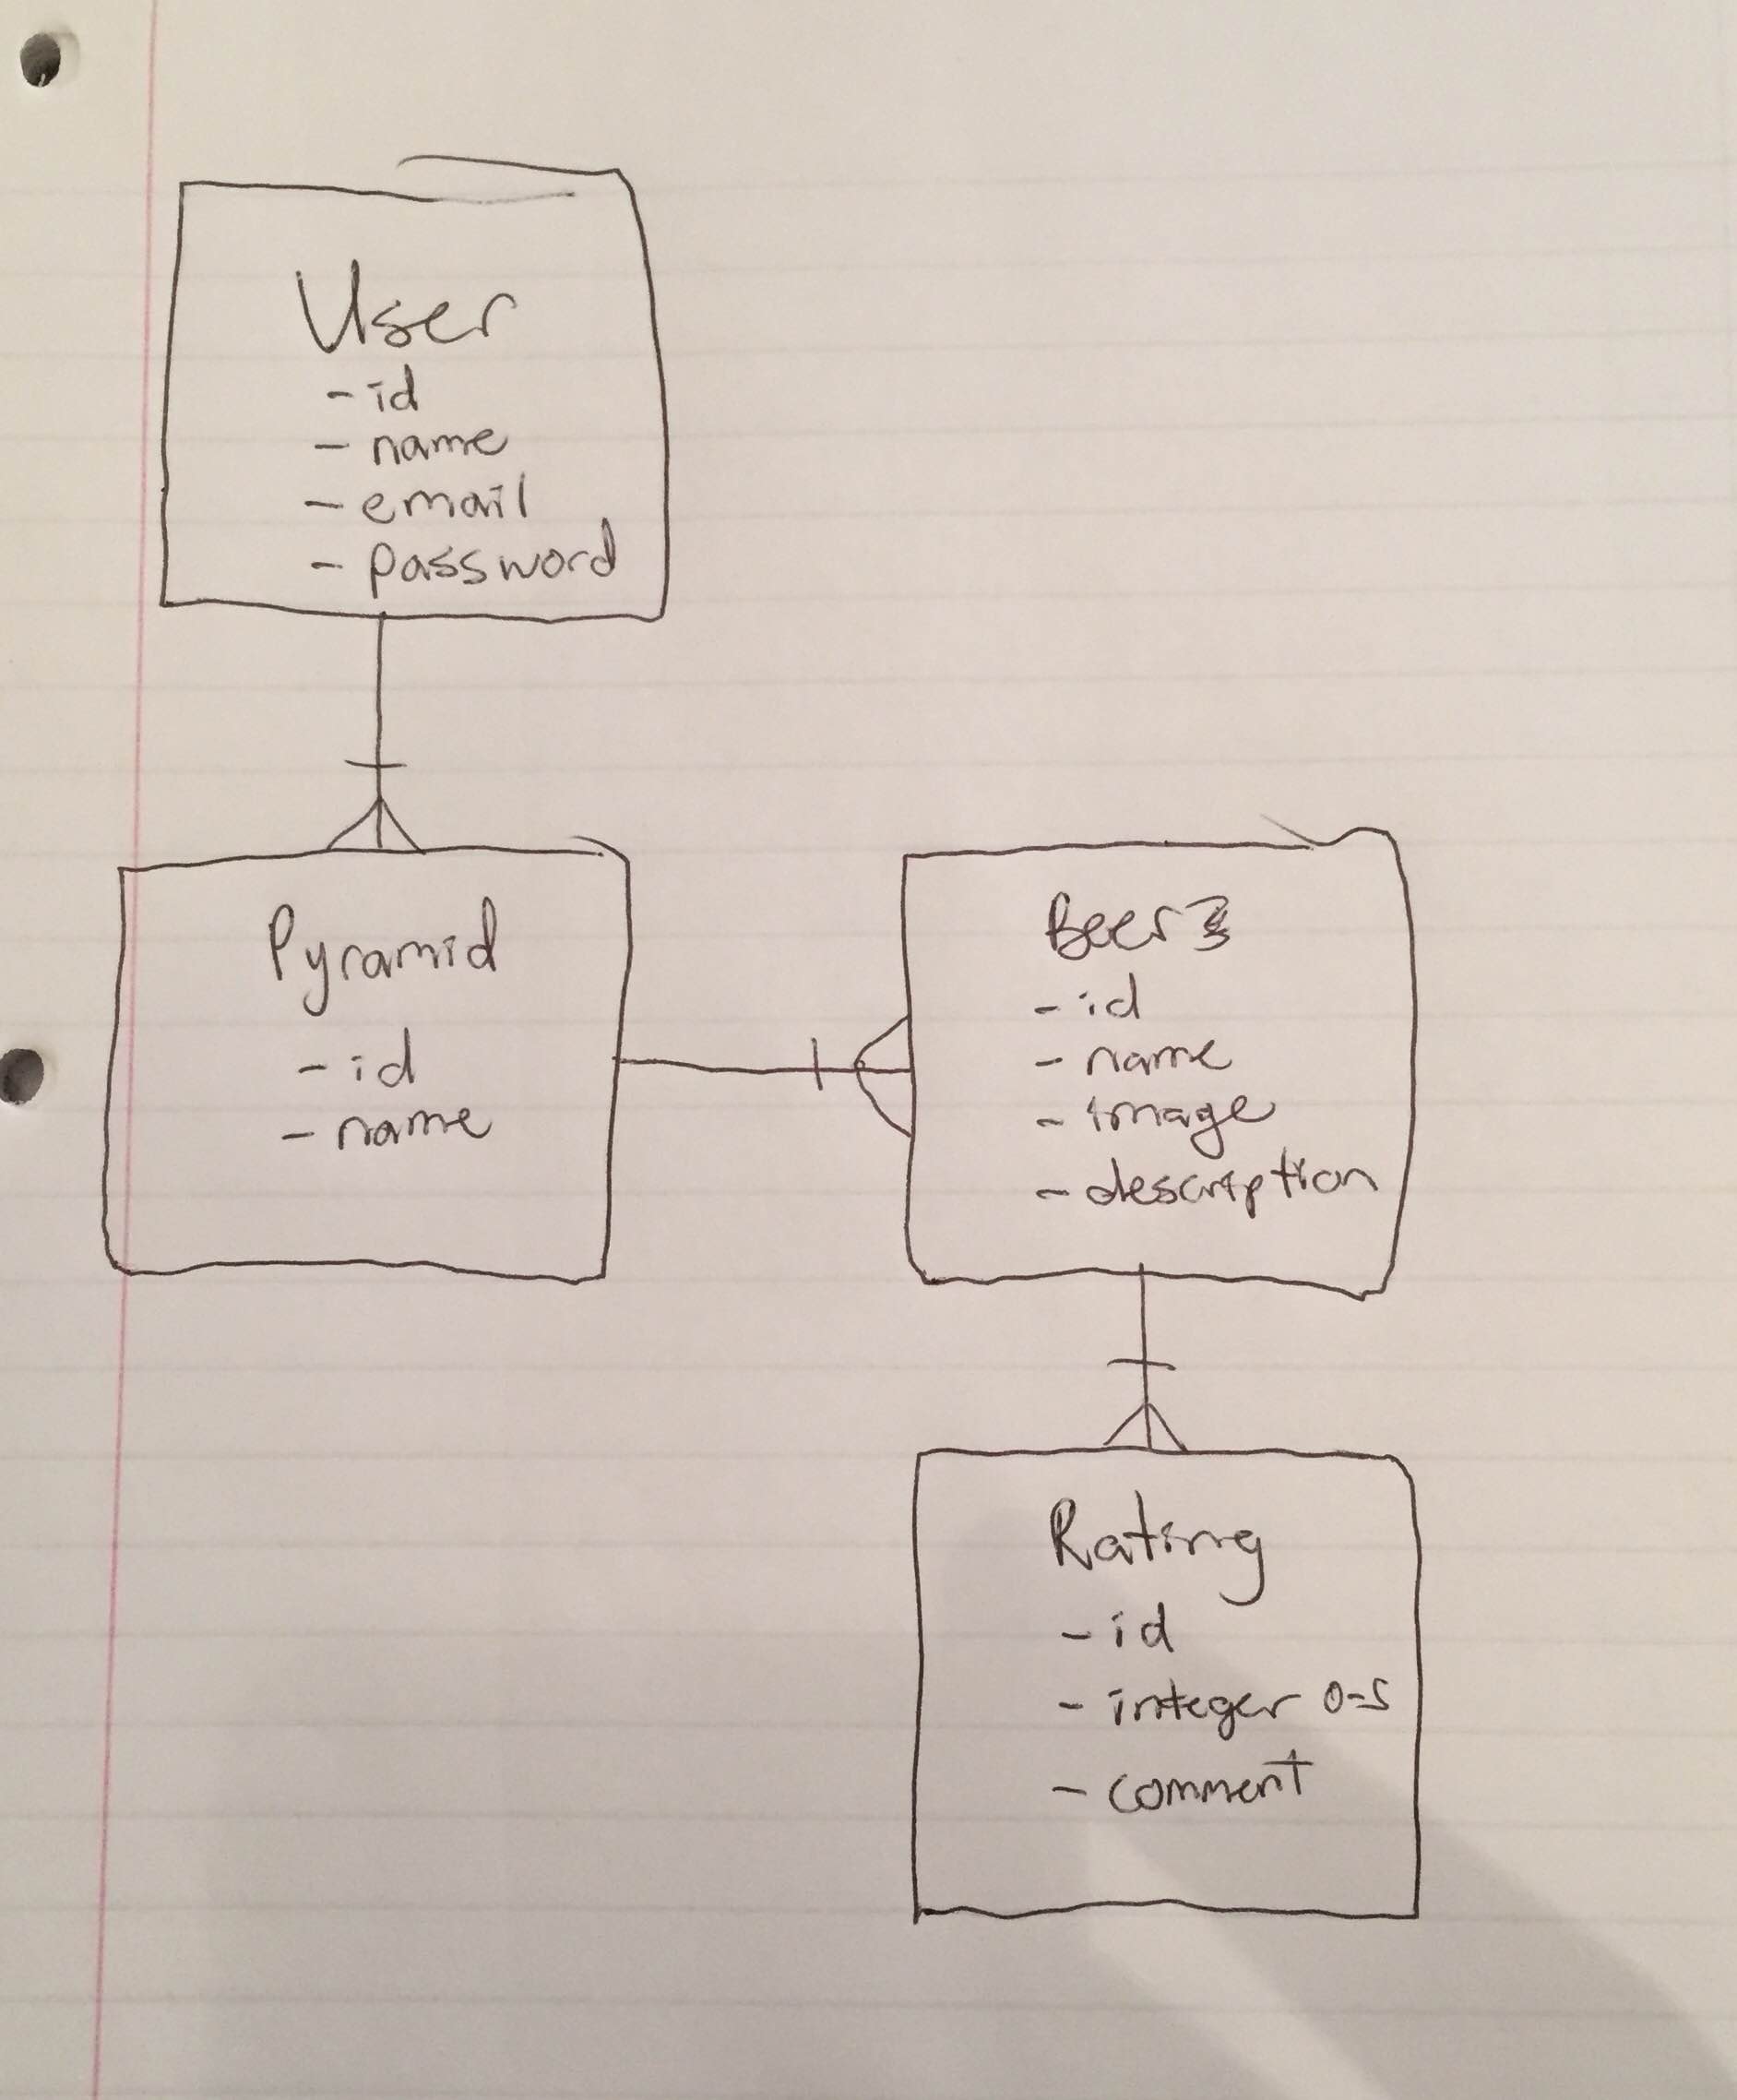 User
- id
- name
- email
- password
Pyramid
- id
- name
Beer
- id
- name
- image
- description
Rating
- id
- integer 0-5
- comment